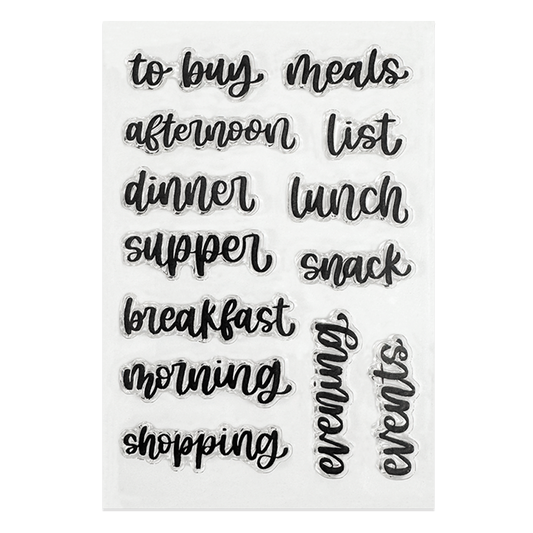 to buy
meals
afternoon
list
dinner
lunch
supper
snack
breakfast
morning
shopping
evening
events